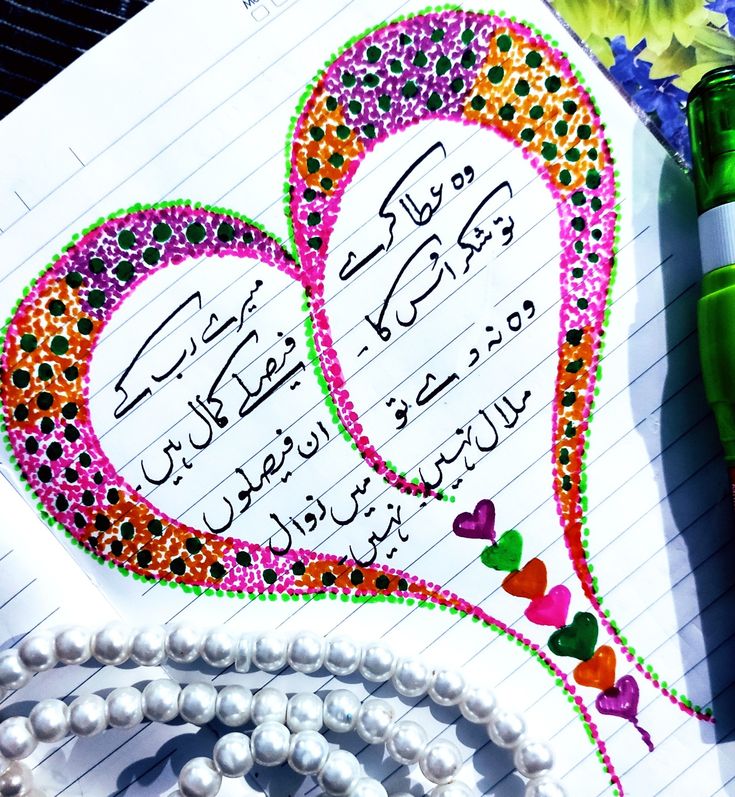 وہ عطا کرے
تو شکر اُس کا۔
وہ نہ دے تو
ملال نہیں۔
میرے رب کے
فیصلے کمال ہیں۔
ان فیصلوں
میں زوال
نہیں۔